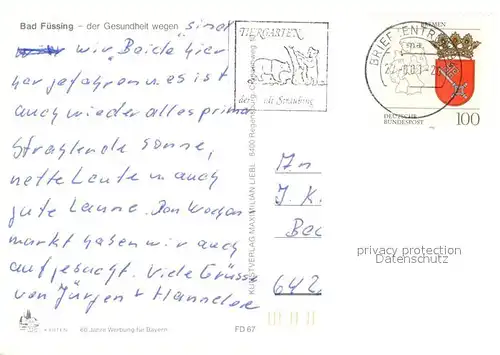 Bad Füssing – der Gesundheit wegen "sind
wir "Beide hier
her gefahren u. es ist
auch wieder alles prima
Strahlende Sonne,
nette Leute u. auch
gute Laune. Den Wochen
markt haben wir auch
aufgesucht. Viele Grüsse
von Jürgen + Hannelore
KARTEN 60 Jahre Werbung für Bayern FD 67
KUNSTVERLAG MAXIMILIAN LIEBL 8400 Regensburg
TIERGARTEN
Straubing
BRIEFZENTRUM
BREMEN
DEUTSCHE
BUNDESPOST
100
An
J. K.
Bec
642
privacy protection
Datenschutz